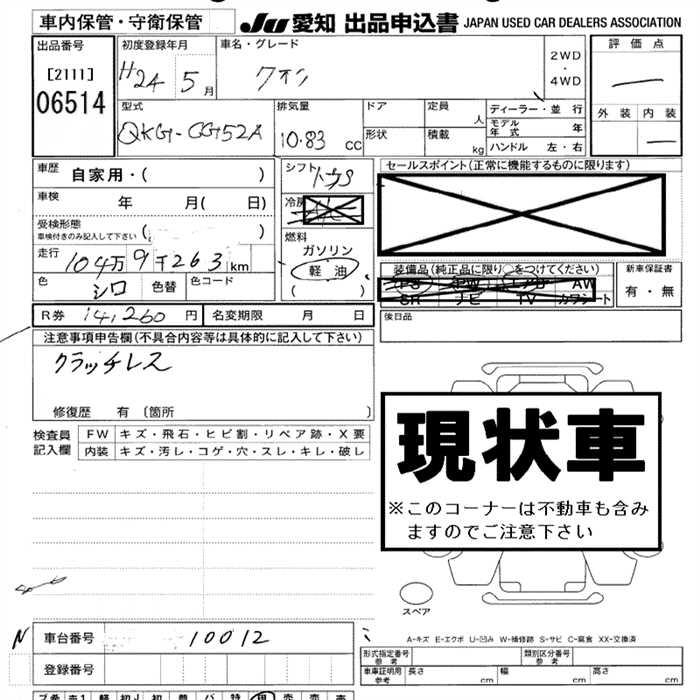 車内保管・守衛保管 JU 愛知 出品申込書 JAPAN USED CAR DEALERS ASSOCIATION
出品番号 [2111] 06514
初度登録年月 H24 5月
車名・グレード クオン
2WD・4WD
評価点 —
外装 内装 —
型式 QKG-CG52A
排気量 10.83 CC
ドア 定員 人
形状 積載 kg
ディーラー・並行
モデル年式 年
ハンドル 左・右
車歴 自家用・( )
車検 年 月( 日)
受検形態 ( )
車検付きのみ記入して下さい
走行 104万9千263km
色 シロ 色替 色コード
シフト
冷房
燃料
ガソリン
軽油
( )
セールスポイント(正常に機能するものに限ります)
装備品(純正品に限り○をつけてください)
PS PW AW
SR ナビ TV カワシート
新車保証書
有・無
後日品
R券 14,260円 名変期限 月 日
注意事項申告欄(不具合内容等は具体的に記入して下さい)
クラッチレス
修復歴 有 〔箇所 〕
検査員記入欄
FW キズ・飛石・ヒビ割・リペア跡・X要
内装 キズ・汚レ・コゲ・穴・スレ・キレ・破レ
現状車
※このコーナーは不動車も含み
ますのでご注意下さい
スペア
A-キズ E-エクボ U-凹み W-補修跡 S-サビ C-腐食 XX-交換済
N
車台番号 10012
登録番号
形式指定番号 参考 類別区分番号 参考
車車証明用 参考 長さ cm 幅 cm 高さ cm